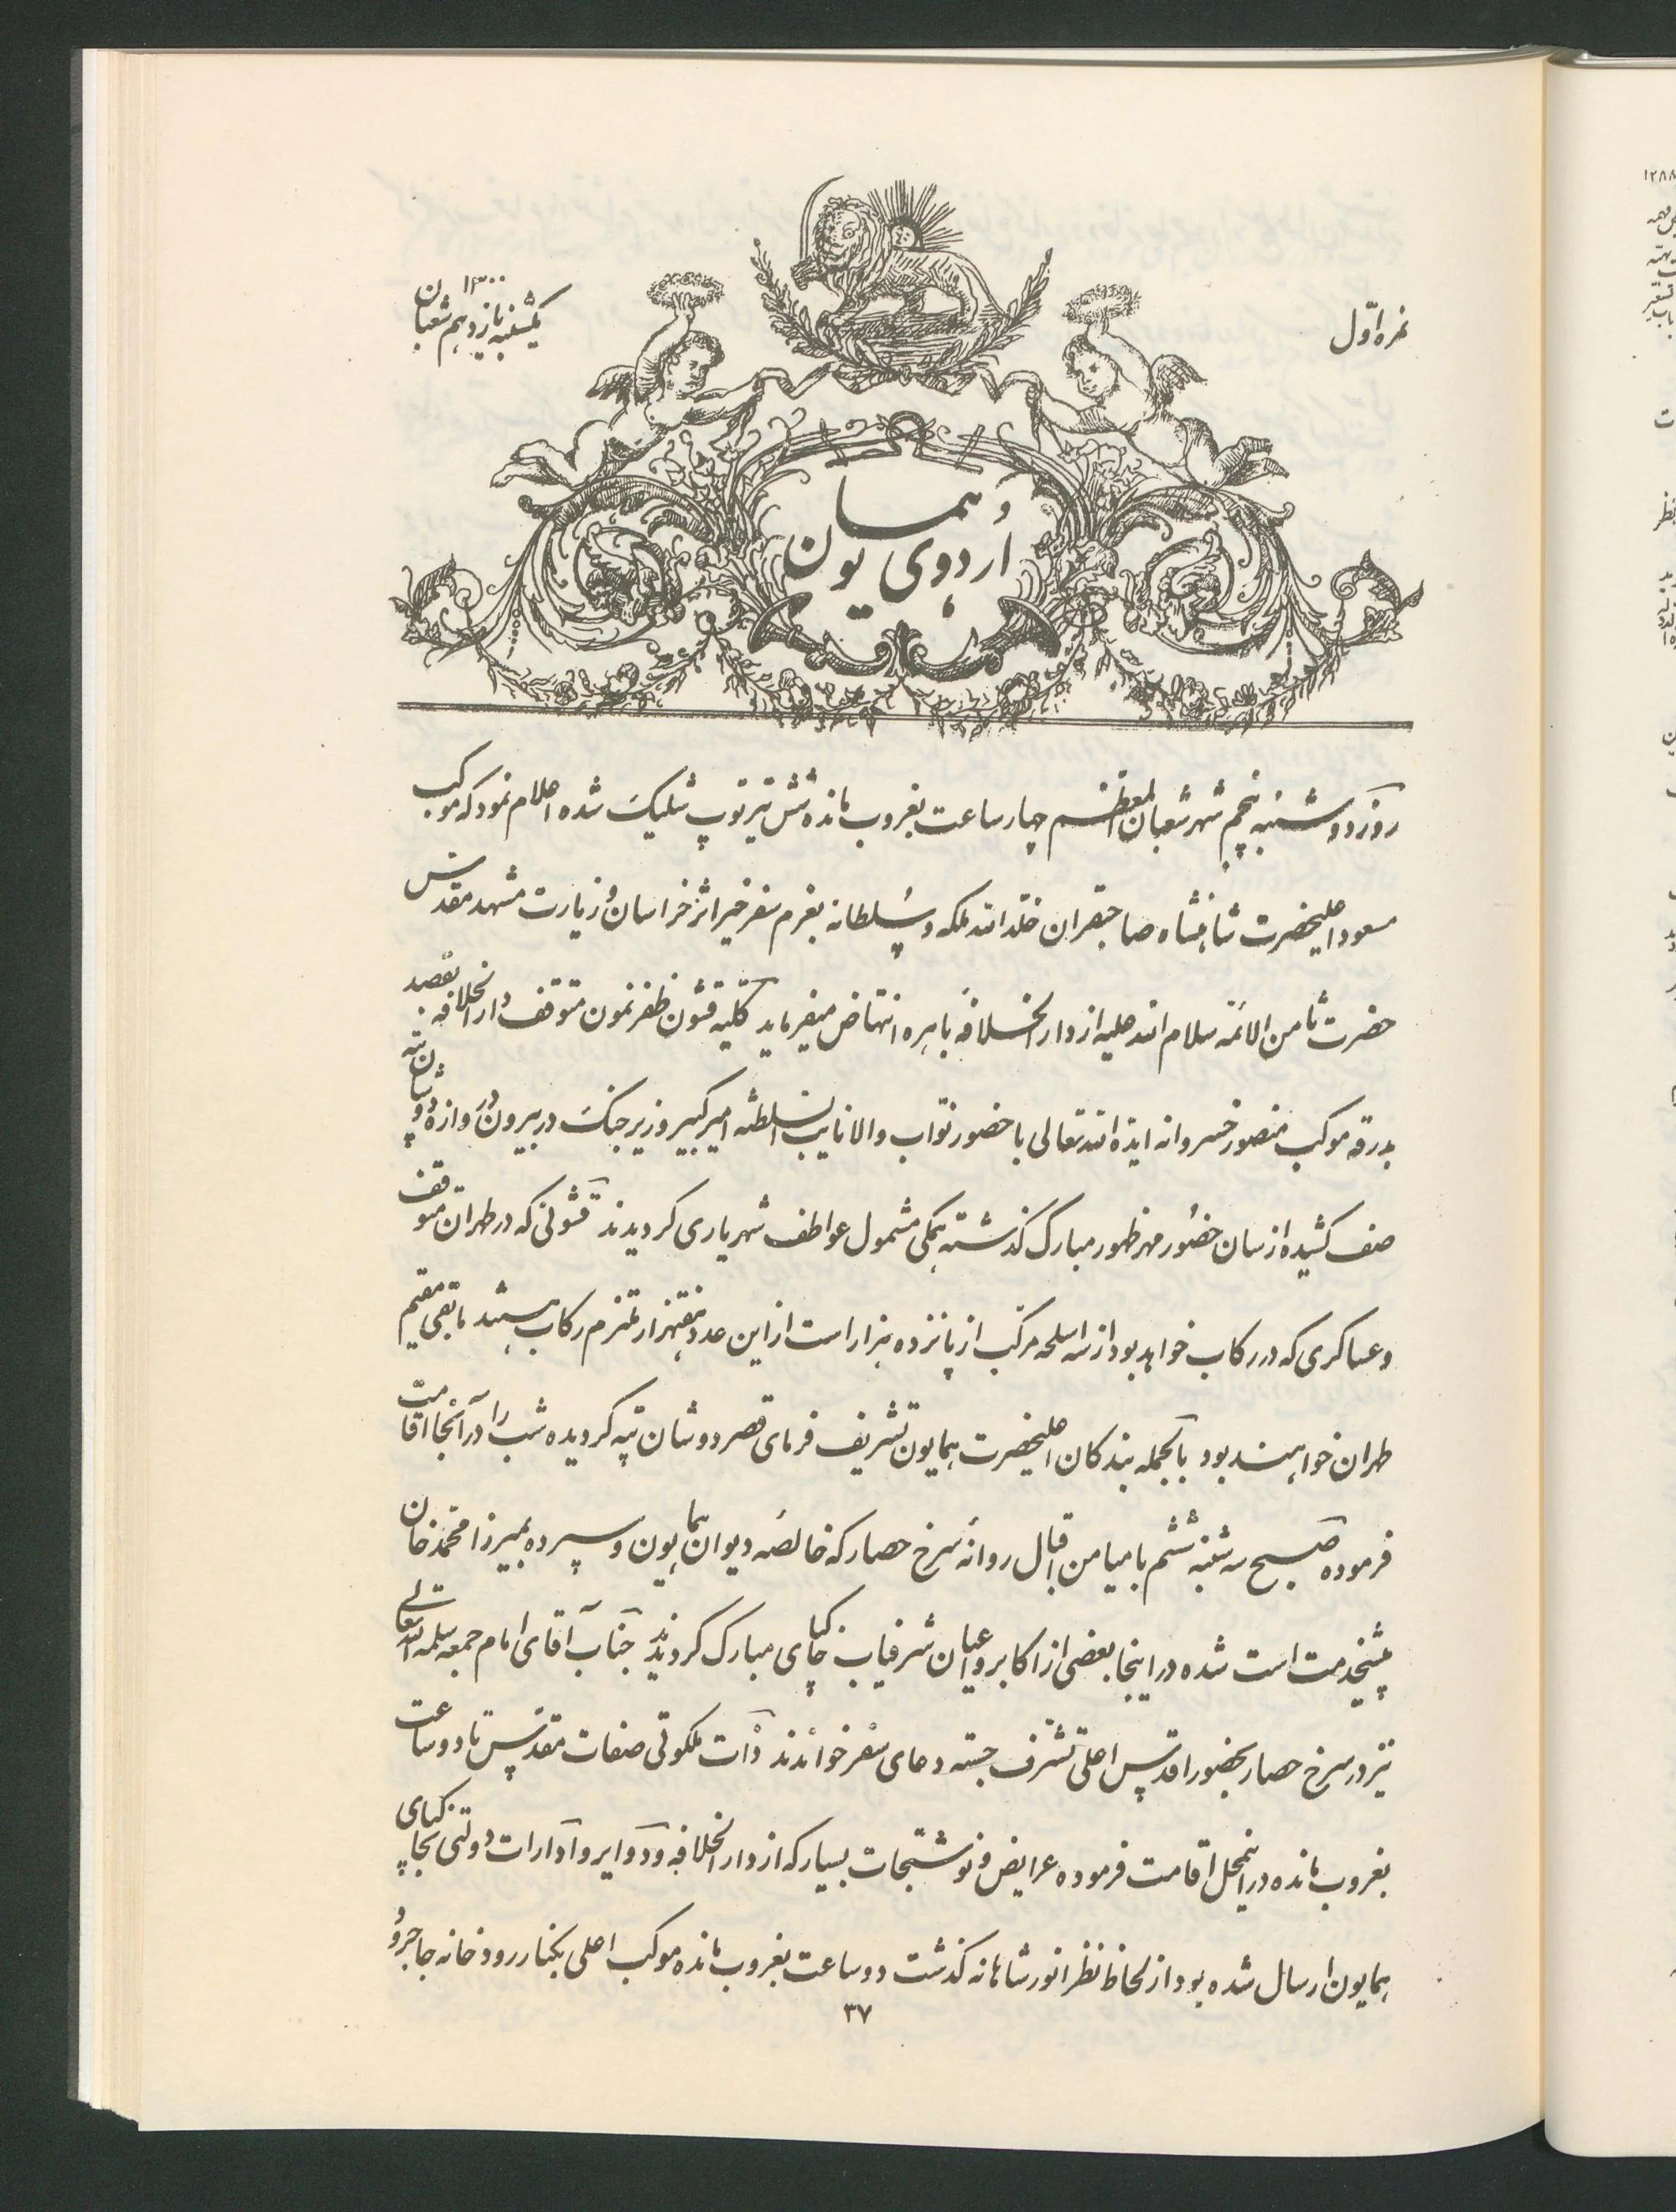 نمره اوّل
یکشنبه یازدهم شعبان ۱۳۰۰
اُردوی همایون
روز دوشنبه پنجم شهر شعبان المعظم چهار ساعت بغروب مانده شش تیر توپ شلیک شده اعلام نمود که موکب
مسعود اعلیحضرت شاهنشاه صاحبقران خلد الله ملکه و سلطانه بعزم سفر خیر اثر خراسان و زیارت مشهد مقدس
حضرت ثامن الائمه سلام الله علیه از دار الخلافهٔ باهره انتهاض میفرماید کلیه قشون ظفر نمون متوقف دار الخلافه بقصد
بدرقه موکب منصور خسروانه ایده الله تعالی با حضور نواب والا نایب السلطنه امیر کبیر وزیر جنک در بیرون دروازهٔ دوشان تپه
صف کشیده از سان حضور مهر ظهور مبارک گذشته همکی مشمول عواطف شهریاری کردیدند قشونی که در طهران متوقف
و عساکری که در رکاب خواهد بود از سه اسلحه مرکب از پانزده هزار است از این عدد هفتهزار ملتزم رکاب هستند مابقی مقیم
طهران خواهند بود بالجمله بندکان اعلیحضرت همایون تشریف فرمای قصر دوشان تپه کردیده شب را در آنجا اقامت
فرموده صبح سه شنبه ششم با میامن اقبال روانهٔ سرخ حصار که خالصهٔ دیوان همایون و سپرده بمیرزا محمد خان
پیشخدمت است شده در اینجا بعضی از اکابر و اعیان شرفیاب خاکپای مبارک کردیدند جناب آقای امام جمعه سلمه الله تعالی
نیز در سرخ حصار بحضور اقدس اعلی تشرف جسته دعای سفر خواندند ذات ملکوتی صفات مقدس تا دو ساعت
بغروب مانده در اینمحل اقامت فرموده عرایض و نوشتجات بسیار که از دار الخلافه و دوایر و ادارات دولتی بخاکپای
همایون ارسال شده بود از لحاظ نظر انور شاهانه گذشت دو ساعت بغروب مانده موکب اعلی بکنار رودخانه جاجرود
۳۷
۱۲۸۸